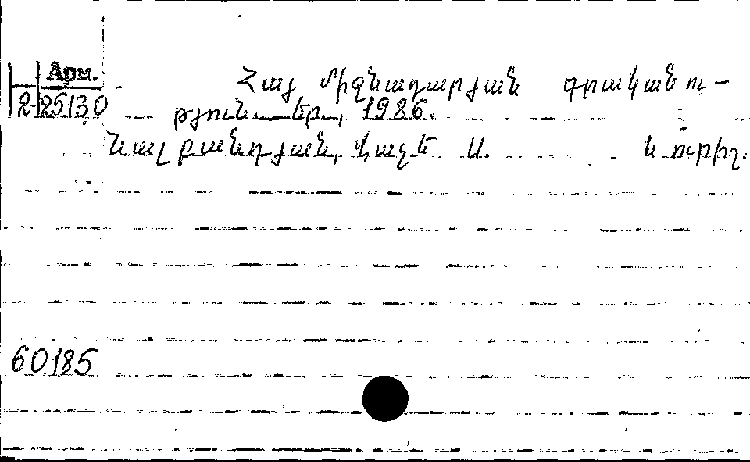 Арм.
2-25130
Հայ միջնադարյան գրականու-
թյուն. . . եր., 1986.
Նալբանդյան, Վաչե Ս. և ուրիշ.
60185